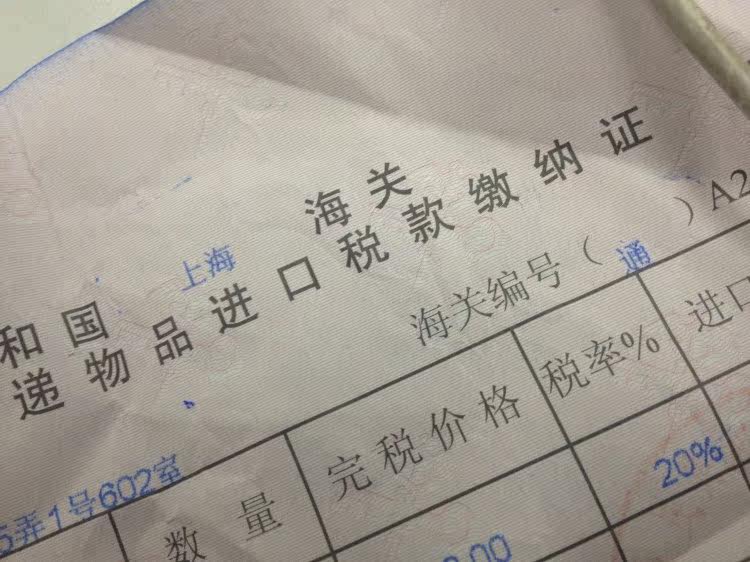 和国 上海 海关
递物品进口税款缴纳证
海关编号（通）A2
5弄1号602室
数量 完税价格 税率% 进口
.00 20%